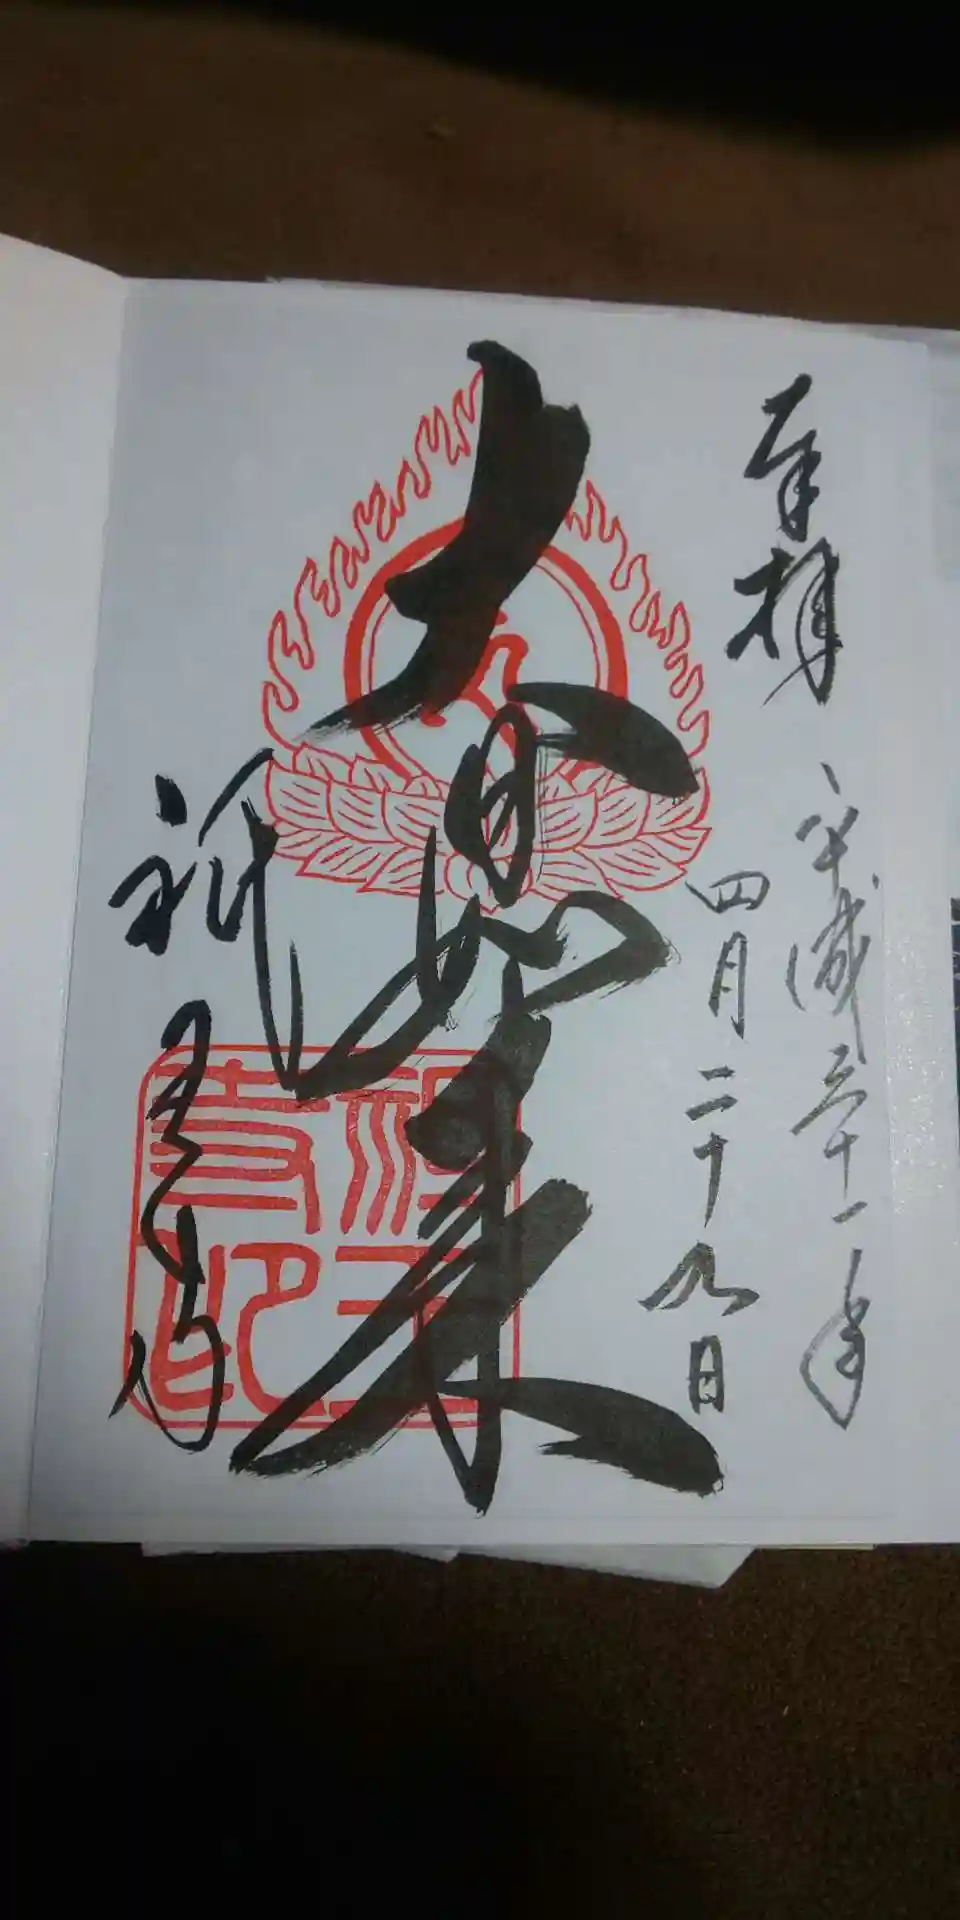 奉拝
平成三十一年
四月二十九日
大日如来
祇王寺